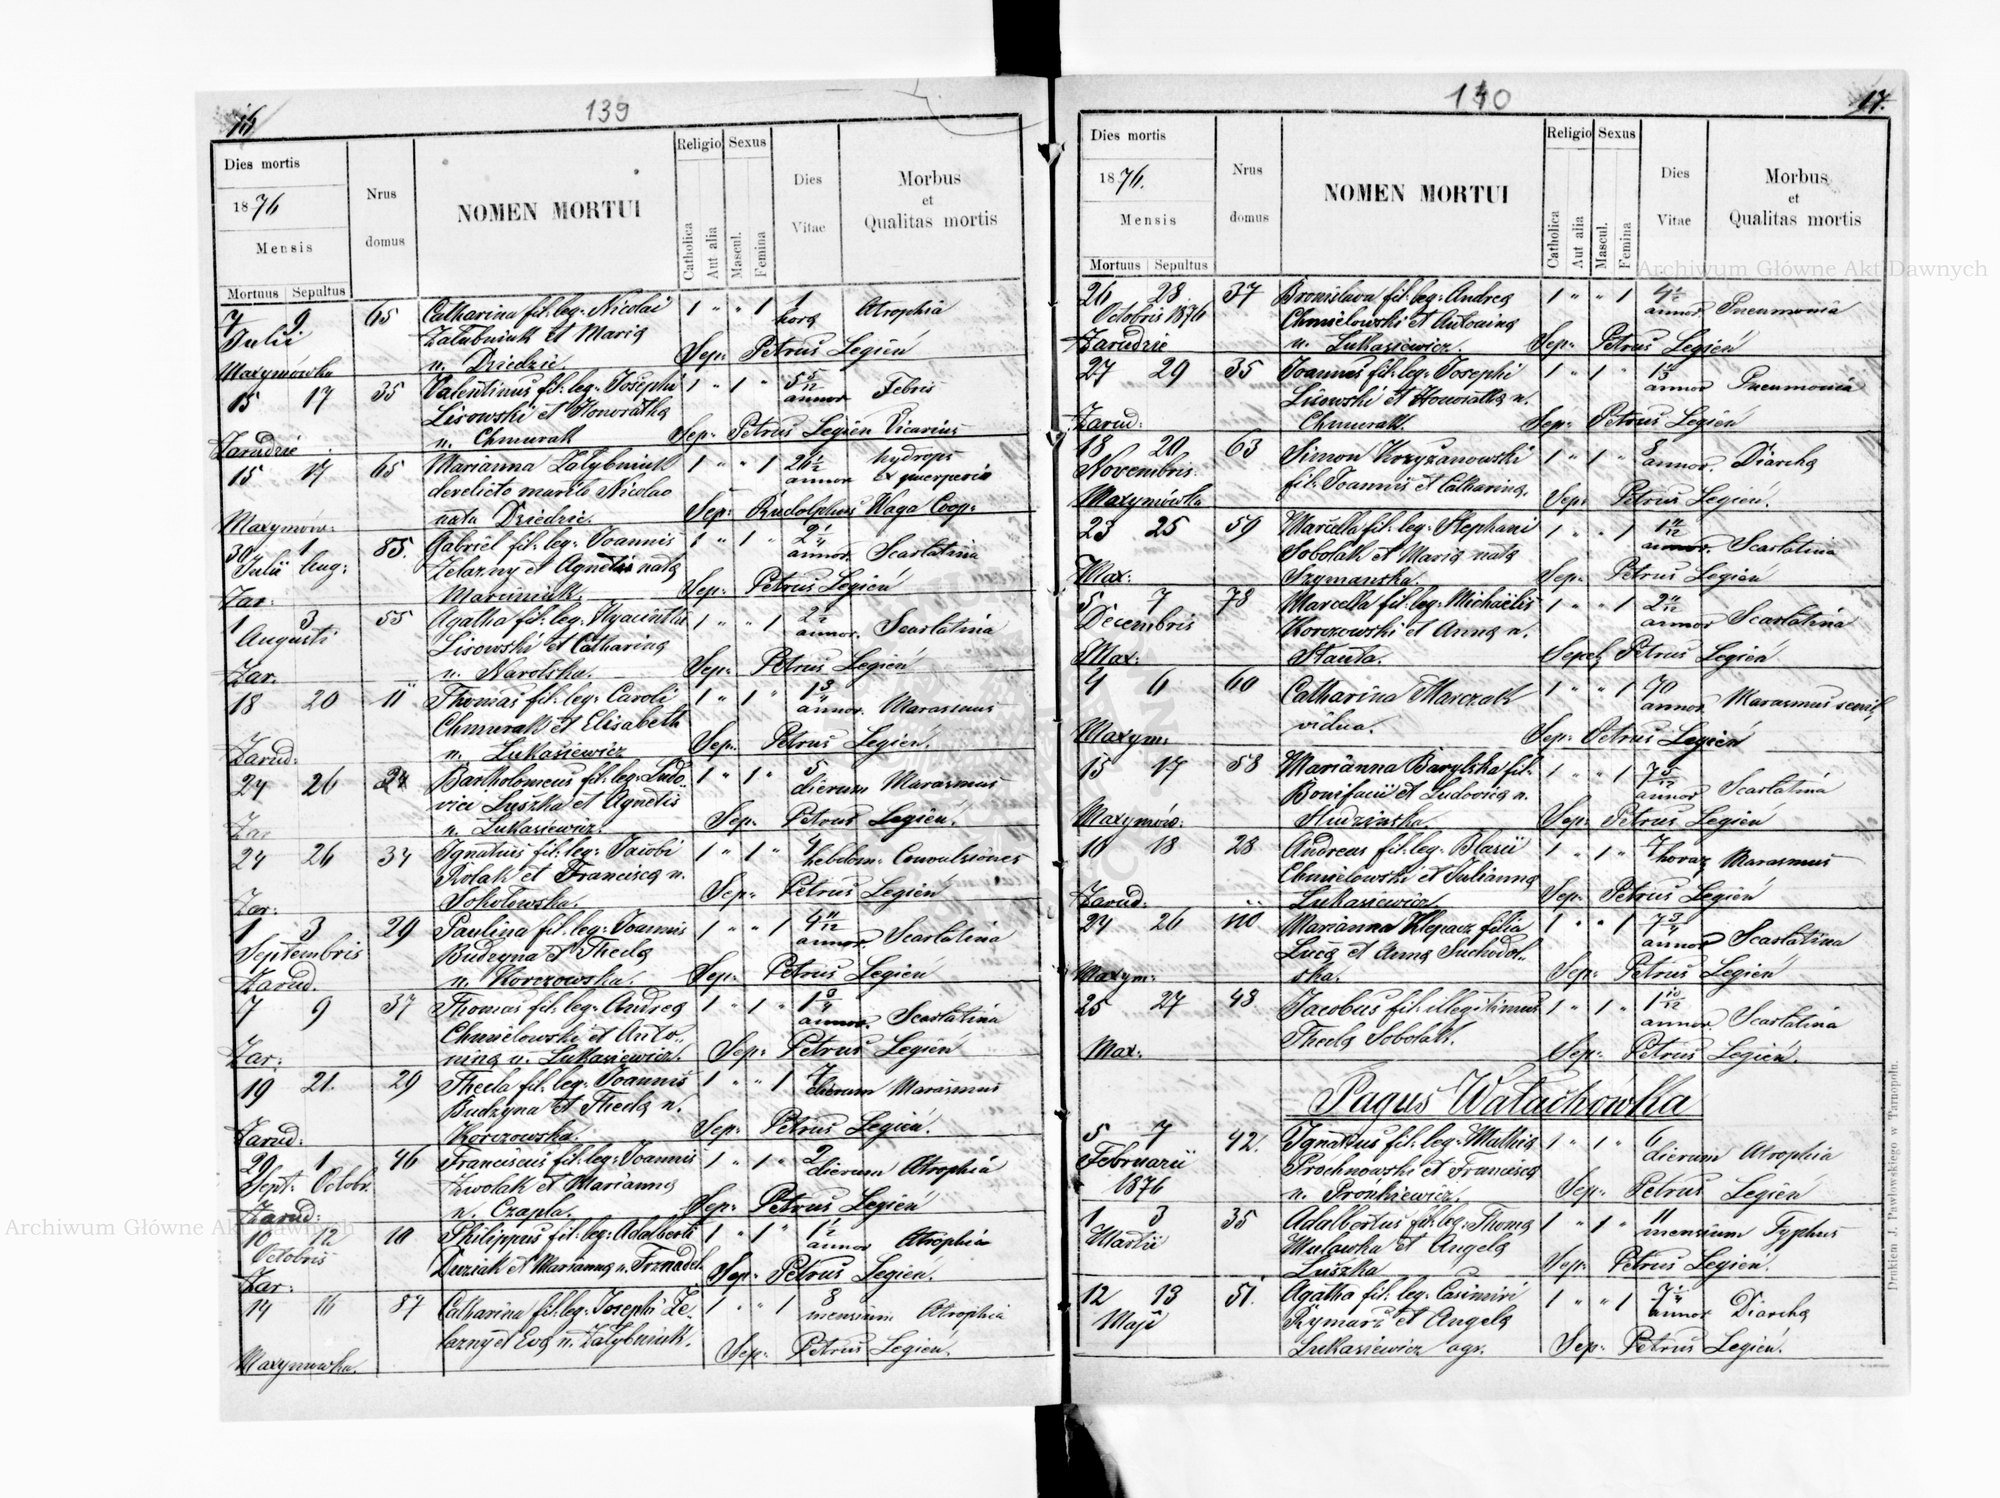 16
139
Dies mortis
1876
Mensis
Mortuus Sepultus
Nrus
domus
NOMEN MORTUI
Religio
Catholica
Aut alia
Sexus
Mascul.
Femina
Dies
Vitae
Morbus
et
Qualitas mortis
7 9. 65 Catharina fil: leg: Nicolai 1 " " 1 1 Atrophia
Julii Załubniuk et Maria hora
Maxymówka n. Dziedzic. Sep: Petrus Legień
15 17 35 Valentinus fil: leg: Josephi 1 " 1 " 5 5/12 Febris
Lisowski et Honoratha annor.
Zarudzie n. Chmurak Sep: Petrus Legień Vicarius
15 17 65 Marianna Załybniuk 1 " " 1 26 1/2 hydrops
derelicto marito Nicolao annor. ex puerperio
Maxymów: nata Dziedzic. Sep: Rudolphus Waga Coop:
30 1 85. Gabriel fil: leg: Joannis 1 " 1 " 2 1/4 Scarlatina
Julii Aug: Zelazny et Agnetis nata annor.
Zar: Marciniuk. Sep: Petrus Legień
1 3 55 Agatha fil: leg: Hyacinthi 1 " " 1 2 1/2 Scarlatina
Augusti Lisowski et Catharina annor.
Zar. n. Narolska. Sep: Petrus Legień
18 20 11 Thomas fil: leg: Caroli 1 " 1 " 1 3/4 Marasmus
Chmurak et Elisabeth annor.
Zarud: n. Łukasiewicz Sep: Petrus Legień.
24 26 24 Bartholomeus fil: leg: Ludo 1 " 1 " 5 Marasmus
vici Łuszka et Agnetis dierum
Zar n. Łukasiewicz. Sep: Petrus Legień.
24 26 34 Ignatius fil: leg: Jacobi 1 " 1 " 4 Convulsiones
Rolak et Francisca n. hebdom:
Zar: Sokołowska. Sep: Petrus Legień
1 3 29 Paulina fil: leg: Joannis 1 " " 1 4 11/12 Scarlatina
Septembris Budzyna et Thecla annor.
Zarud. n. Korczowska. Sep: Petrus Legień
7 9 37 Thomas fil: leg: Andrea 1 " 1 " 1 3/4 Scarlatina
Chmielowski et Anto annor.
Zar: nina n. Łukasiewicz. Sep: Petrus Legień
19 21. 29 Thecla fil: leg: Joannis 1 " " 1 7 Marasmus
Budzyna et Thecla n. dierum
Zarud: Korczowska. Sep: Petrus Legień.
29 1 46 Franciscus fil: leg: Joannis 1 " 1 " 2 Atrophia
Sept: Octobr. Zwolak et Marianna dierum
Zarud: n. Czapla. Sep: Petrus Legień
10 12 10 Philippus fil: leg: Adalberti 1 " 1 " 1 1/2 Atrophia
Octobris Duziak et Marianna n. Trznadel annor
Zar: Sep: Petrus Legień.
14 16 87 Catharina fil: leg: Josephi Ze 1 " " 1 8 Atrophia
lazny et Eva n. Załybniuk. mensium
Maxymowka. Sep: Petrus Legień.
140
17.
Dies mortis
1876.
Mensis
Mortuus Sepultus
Nrus
domus
NOMEN MORTUI
Religio
Catholica
Aut alia
Sexus
Mascul.
Femina
Dies
Vitae
Morbus
et
Qualitas mortis
26 28 37 Bronislava fil: leg: Andrea 1 " " 1 4 1/2 Pneumonia
Octobris 1876 Chmielowski et Antonina annor
Zarudzie n. Łukasiewicz. Sep: Petrus Legień
27 29 35 Joannes fil: leg: Josephi 1 " 1 " Pneumonia
Lisowski et Honoratha n. annor
Zarud: Chmurak. Sep: Petrus Legień
18 20 63 Simon Krzyżanowski 1 " 1 " 8 Diarrhea
Novembris fil: Joannis et Catharina. annor.
Maxymówka Sep: Petrus Legień.
23 25 59 Marcella fil: leg: Stephani 1 " " 1 1 11/12 Scarlatina
Sobolak et Maria nata annor.
Max: Szymanska. Sep: Petrus Legień
5 7 78 Marcella fil: leg: Michaëlis 1 " " 1 2 11/12 Scarlatina
Decembris Korczowski et Anna n. annor
Max: Stauta. Sepel: Petrus Legień
4 6 60 Catharina Marczak 1 " " 1 70 Marasmus senil.
vidua. annor.
Maxym: Sep: Petrus Legień
15 17 58 Marianna Barylska fil: 1 " " 1 7 5/12 Scarlatina
Bonifacii et Ludovica n. annor
Maxymów: Studzinska. Sep: Petrus Legień
16 18 28 Andreas fil: leg: Blasii 1 " 1 " 7 Marasmus
Chmielowski et Julianna horar
Zarud: Łukasiewicz. Sep: Petrus Legień
24 26 110 Marianna Klepacz filia 1 " " 1 7 3/4 Scarlatina
Luca et Anna Suchodol annor
Maxym: ska. Sep: Petrus Legień
25 27 48 Jacobus fil: illegitimus 1 " 1 " 1 10/12 Scarlatina
Thecla Sobolak. annor.
Max: Sep: Petrus Legień.
Pagus Wałachówka
5 7 42. Ignatius fil: leg: Mathia 1 " 1 " 6 Atrophia
Februarii Prochnowski et Francisca dierum
1876 n. Prońkiewicz. Sep: Petrus Legień
1 3 35 Adalbertus fil: leg: Thoma 1 " 1 " 11 Typhus
Martii Mulawka et Angela mensium
Łuszka Sep: Petrus Legień.
12 13 51. Agatha fil: leg: Casimiri 1 " " 1 7 1/4 Diarrhea
Maji Rymarz et Angela annor
Łukasiewicz agr. Sep: Petrus Legień.
Drukiem J. Pawłowskiego w Tarnopolu.
Archiwum Główne Akt Dawnych
Archiwum Główne Akt Dawnych